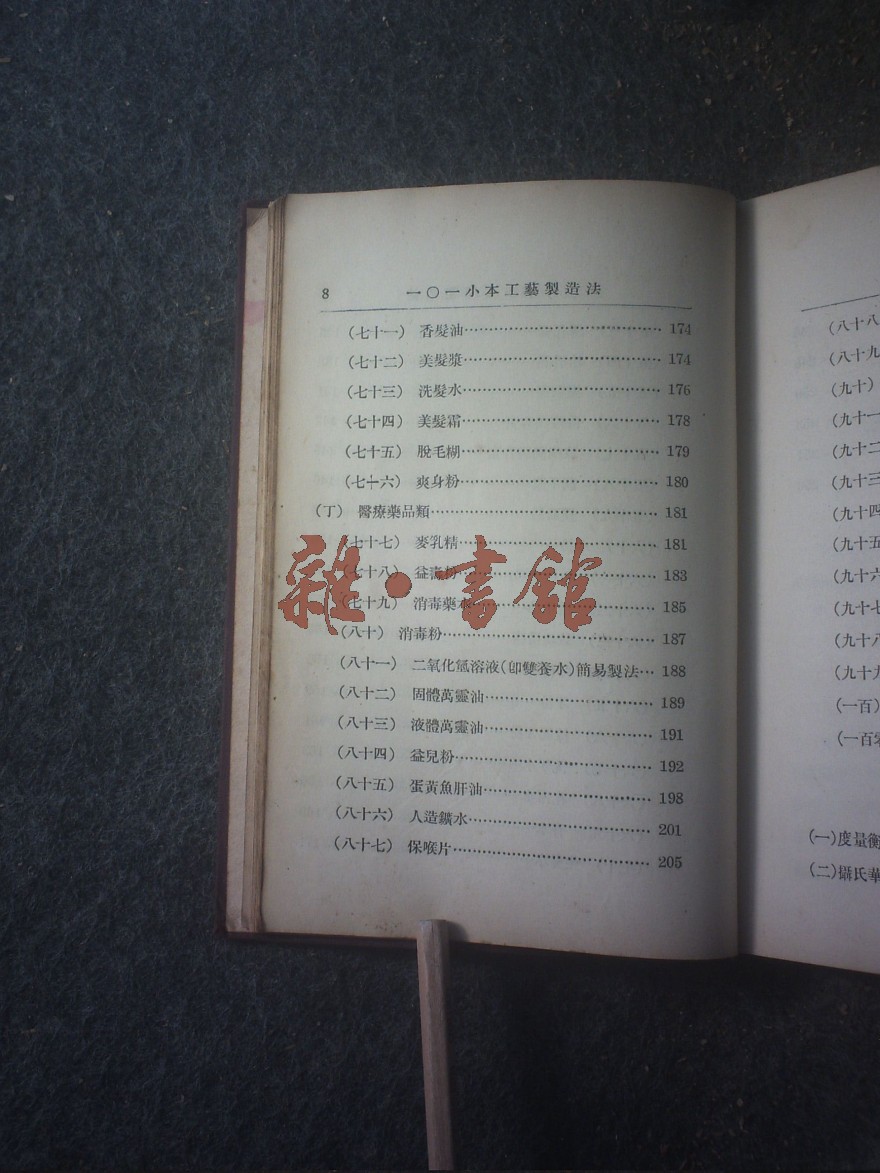 8 一〇一小本工藝製造法
(七十一) 香髮油 174
(七十二) 美髮漿 174
(七十三) 洗髮水 176
(七十四) 美髮霜 178
(七十五) 脫毛糊 179
(七十六) 爽身粉 180
(丁) 醫療藥品類 181
(七十七) 麥乳精 181
(七十八) 益壽粉 183
(七十九) 消毒藥水 185
(八十) 消毒粉 187
(八十一) 二氧化氫溶液(卽雙養水)簡易製法 188
(八十二) 固體萬靈油 189
(八十三) 液體萬靈油 191
(八十四) 益兒粉 192
(八十五) 蛋黃魚肝油 198
(八十六) 人造鑛水 201
(八十七) 保喉片 205
雜·書館
(八十八
(八十九
(九十)
(九十一
(九十二
(九十三
(九十四
(九十五
(九十六
(九十七
(九十八
(九十九
(一百)
(一百零
(一)度量衡
(二)攝氏華